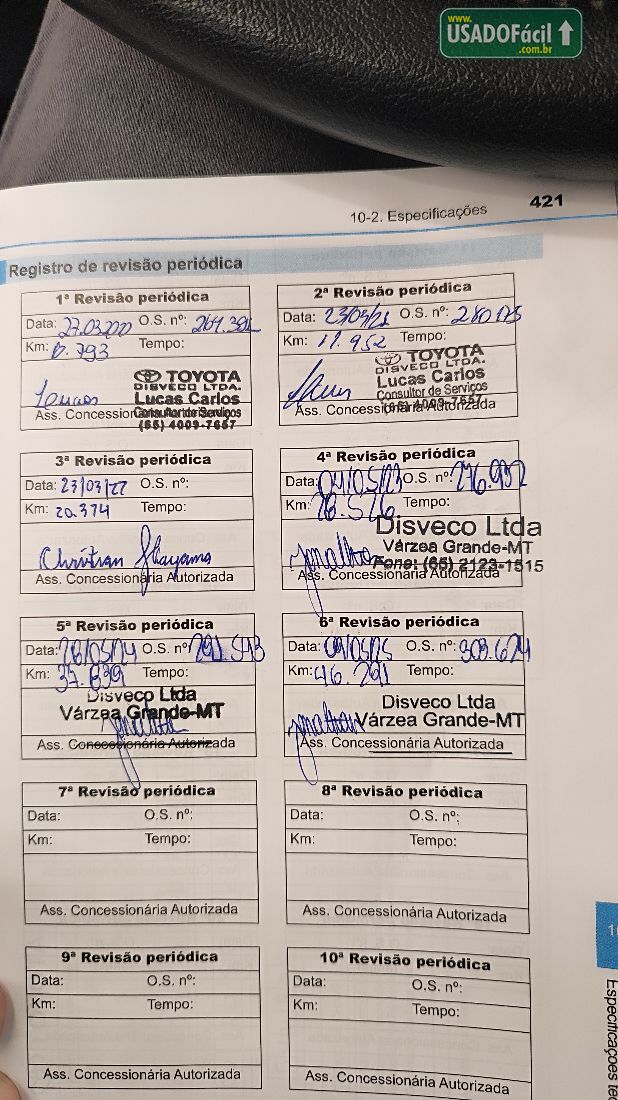 www.
USADOFácil
.com.br
10-2. Especificações 421
Registro de revisão periódica
1ª Revisão periódica
Data: O.S. nº:
Km: 6.793 Tempo:
TOYOTA
DISVECO LTDA.
Lucas Carlos
Consultor de Serviços
(65) 4009-7657
Ass. Concessionária Autorizada
2ª Revisão periódica
Data: 23/03/21 O.S. nº: 280175
Km: 11.952 Tempo:
TOYOTA
DISVECO LTDA.
Lucas Carlos
Consultor de Serviços
(65) 4009-7657
Ass. Concessionária Autorizada
3ª Revisão periódica
Data: 23/03/22 O.S. nº:
Km: 20.374 Tempo:
Ass. Concessionária Autorizada
4ª Revisão periódica
Data: 04/05/23 O.S. nº: 276.932
Km: 28.526 Tempo:
Disveco Ltda
Várzea Grande-MT
Fone: (65) 2123-1515
Ass. Concessionária Autorizada
5ª Revisão periódica
Data: 28/05/24 O.S. nº: 291.543
Km: 37.839 Tempo:
Disveco Ltda
Várzea Grande-MT
Ass. Concessionária Autorizada
6ª Revisão periódica
Data: 09/05/25 O.S. nº: 303.674
Km: 46.291 Tempo:
Disveco Ltda
Várzea Grande-MT
Ass. Concessionária Autorizada
7ª Revisão periódica
Data: O.S. nº:
Km: Tempo:
Ass. Concessionária Autorizada
8ª Revisão periódica
Data: O.S. nº:
Km: Tempo:
Ass. Concessionária Autorizada
9ª Revisão periódica
Data: O.S. nº:
Km: Tempo:
Ass. Concessionária Autorizada
10ª Revisão periódica
Data: O.S. nº:
Km: Tempo:
Ass. Concessionária Autorizada
Especificações